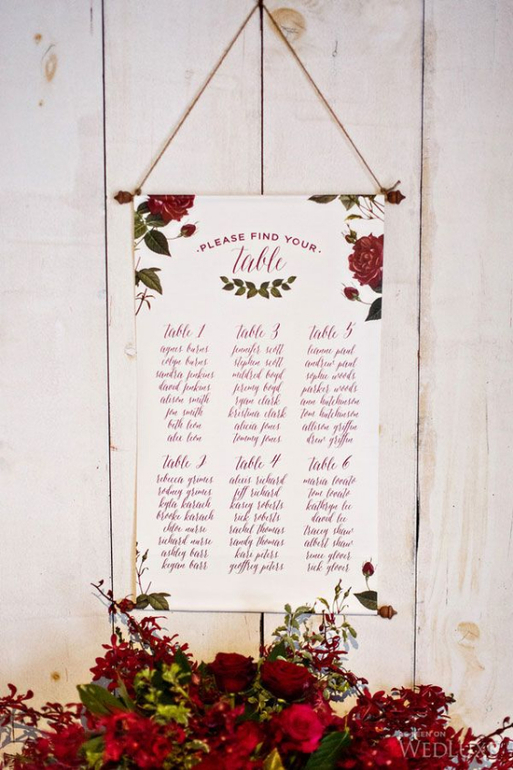 PLEASE FIND YOUR
table
table 1
agnes burns
colyn burns
sandra jenkins
david jenkins
alison smith
jon smith
beth leon
alec leon
table 3
jennifer scott
stephen scott
mildred boyd
jeremy boyd
ryan clark
kristina clark
alicia jones
tommy jones
table 5
leanne paul
andrew paul
sophie woods
parker woods
ann hutchinson
tom hutchinson
allison griffin
drew griffin
table 2
rebecca grimes
rodney grimes
kyla karach
brooke karach
chloe nurse
richard nurse
ashley barr
kegan barr
table 4
alexis richard
jeff richard
kasey roberts
rick roberts
rachel thomas
randy thomas
kari peters
geoffrey peters
table 6
maria lovato
tom lovato
kathryn lee
david lee
tracey shaw
albert shaw
renee glover
rick glover
AS SEEN ON
WEDLUXE